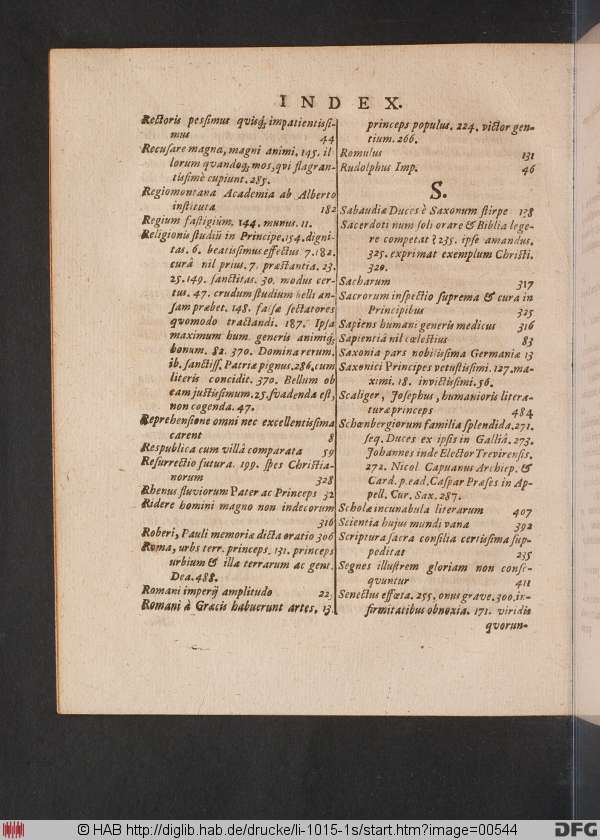 INDEX.
Rectoris pessimus quisq; impatientissi-
mus 44
Recusare magna, magni animi. 145. il-
lorum quandoq; mos, qui flagran-
tissimè cupiunt. 285.
Regiomontana Academia ab Alberto
instituta 182
Regium fastigium. 144. munus. 11.
Religionis studiũ in Principe. 154. digni-
tas. 6. beatissimus effectus 7. 182.
curâ nil prius. 7. præstantia. 23.
25. 149. sanctitas. 30. modus cer-
tus. 47. crudum studium belli an-
sam præbet. 148. falsæ sectatores
qvomodo tractandi. 187. Ipsa
maximum hum. generis animiq;
bonum. 82. 370. Domina rerum.
ib. sanctiss. Patriæ pignus. 286. cum
literis concidit. 370. Bellum ob
eam justissimum. 25. svadenda est,
non cogenda. 47.
Reprehensione omni nec excellentissima
carent 8
Respublica cum villâ comparata 59
Resurrectio futura. 199. spes Christia-
norum 328
Rhenus fluviorum Pater ac Princeps 32
Ridere homini magno non indecorum
316
Roberi, Pauli memoriæ dicta oratio 306
Roma, urbs terr. princeps. 131. princeps
urbium & illa terrarum ac gent.
Dea. 488.
Romani imperij amplitudo 22.
Romani à Græcis habuerunt artes. 13.
princeps populus. 224. victor gen-
tium. 266.
Romulus 131
Rudolphus Imp. 46
S.
Sabaudiæ Duces è Saxonum stirpe 138
Sacerdoti num soli orare & Biblia lege-
re competat? 235. ipse amandus.
325. exprimat exemplum Christi.
320.
Sacharum 317
Sacrorum inspectio suprema & cura in
Principibus 325
Sapiens humani generis medicus 316
Sapientiâ nil cœlestius 83
Saxonia pars nobilissima Germaniæ 13
Saxonici Principes vetustissimi. 127. ma-
ximi. 18. invictissimi. 56.
Scaliger, Josephus, humanioris litera-
turæ princeps 484
Schœnbergiorum familia splendida. 271.
seq. Duces ex ipsis in Galliâ. 273.
Johannes inde Elector Trevirensis.
272. Nicol. Capuanus Archiep. &
Card. p. ead. Caspar Præses in Ap-
pell. Cur. Sax. 287.
Scholæ incunabula literarum 407
Scientia hujus mundi vana 392
Scriptura sacra consilia certissima sup-
peditat 235
Segnes illustrem gloriam non conse-
qvuntur 411
Senectus effœta. 255. onus grave. 300. in-
firmitatibus obnoxia. 171. viridis
qvorun-
© HAB http://diglib.hab.de/drucke/li-1015-1s/start.htm?image=00544
DFG